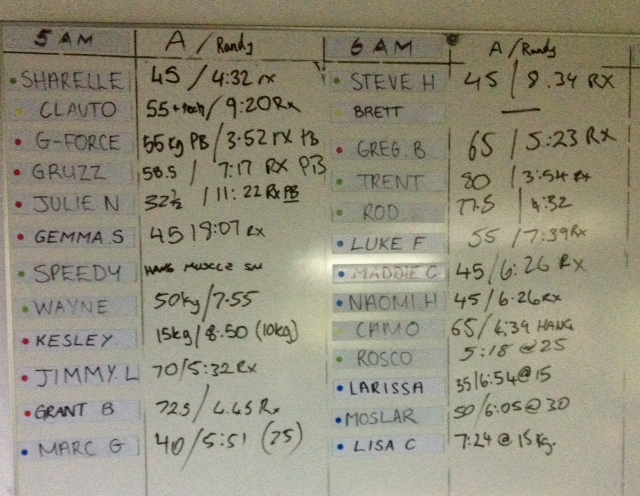 5 AM A / Randy
SHARELLE 45 / 4:32 rx
CLAUTO 55 + tech / 9:20 Rx
G-FORCE 55kg PB / 3.52 rx PB
GRUZZ 58.5 / 7:17 RX PB
JULIE N 32½ / 11:22 Rx PB
GEMMA.S 45 / 9:07 Rx
SPEEDY HANG MUSCLE SN
WAYNE 50kg / 7.55
KESLEY 15kg / 8.50 (10kg)
JIMMY.L 70 / 5:32 Rx
GRANT B 72.5 / 4.45 Rx
MARC G 40 / 5:51 (25)
6 AM A / Randy
STEVE H 45 / 8.34 RX
BRETT —
GREG.B 65 / 5:23 RX
TRENT 80 / 3:54 Rx
ROD 77.5 / 4:32
LUKE F 55 / 7:39 Rx
MADDIE C 45 / 6:26 RX
NAOMI H 45 / 6.26 RX
CAMO 65 / 4:39 HANG
ROSCO 5:18 @ 25
LARISSA 35 / 6:54 @ 15
MOSLAR 50 / 6:05 @ 30
LISA C 7:24 @ 15kg.